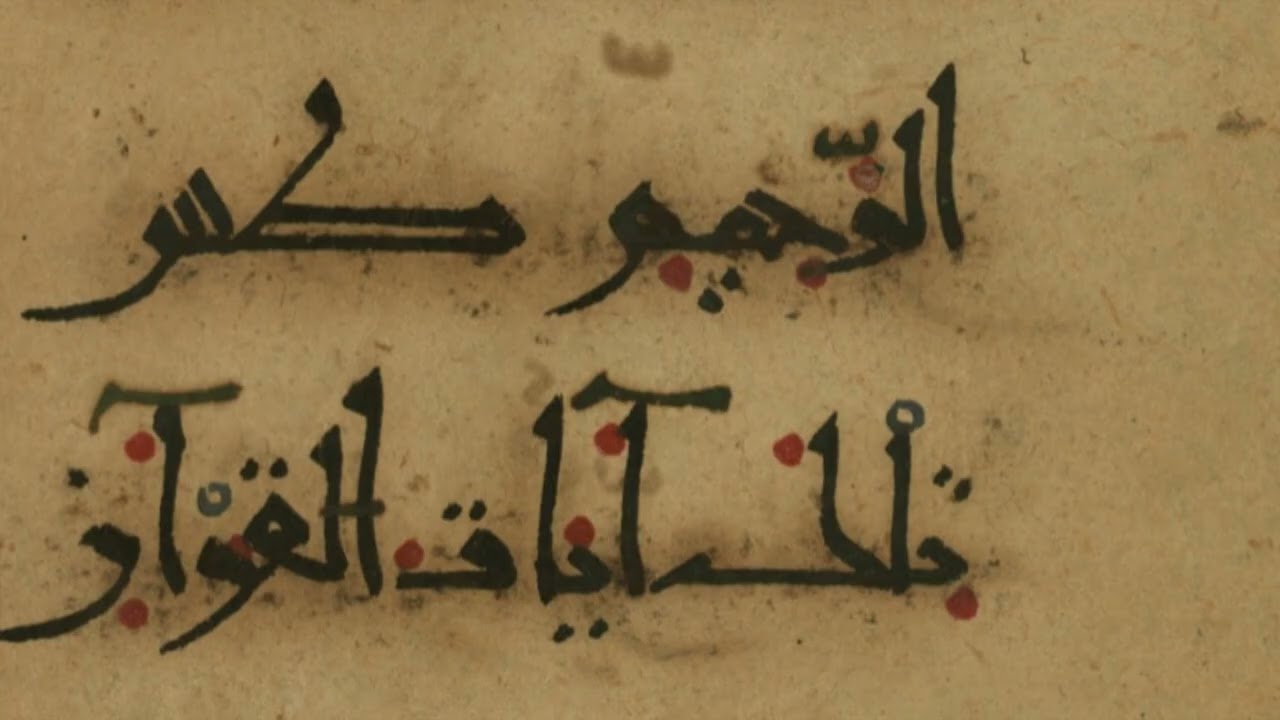 الرّحيم طس
تلك آيات القرآن